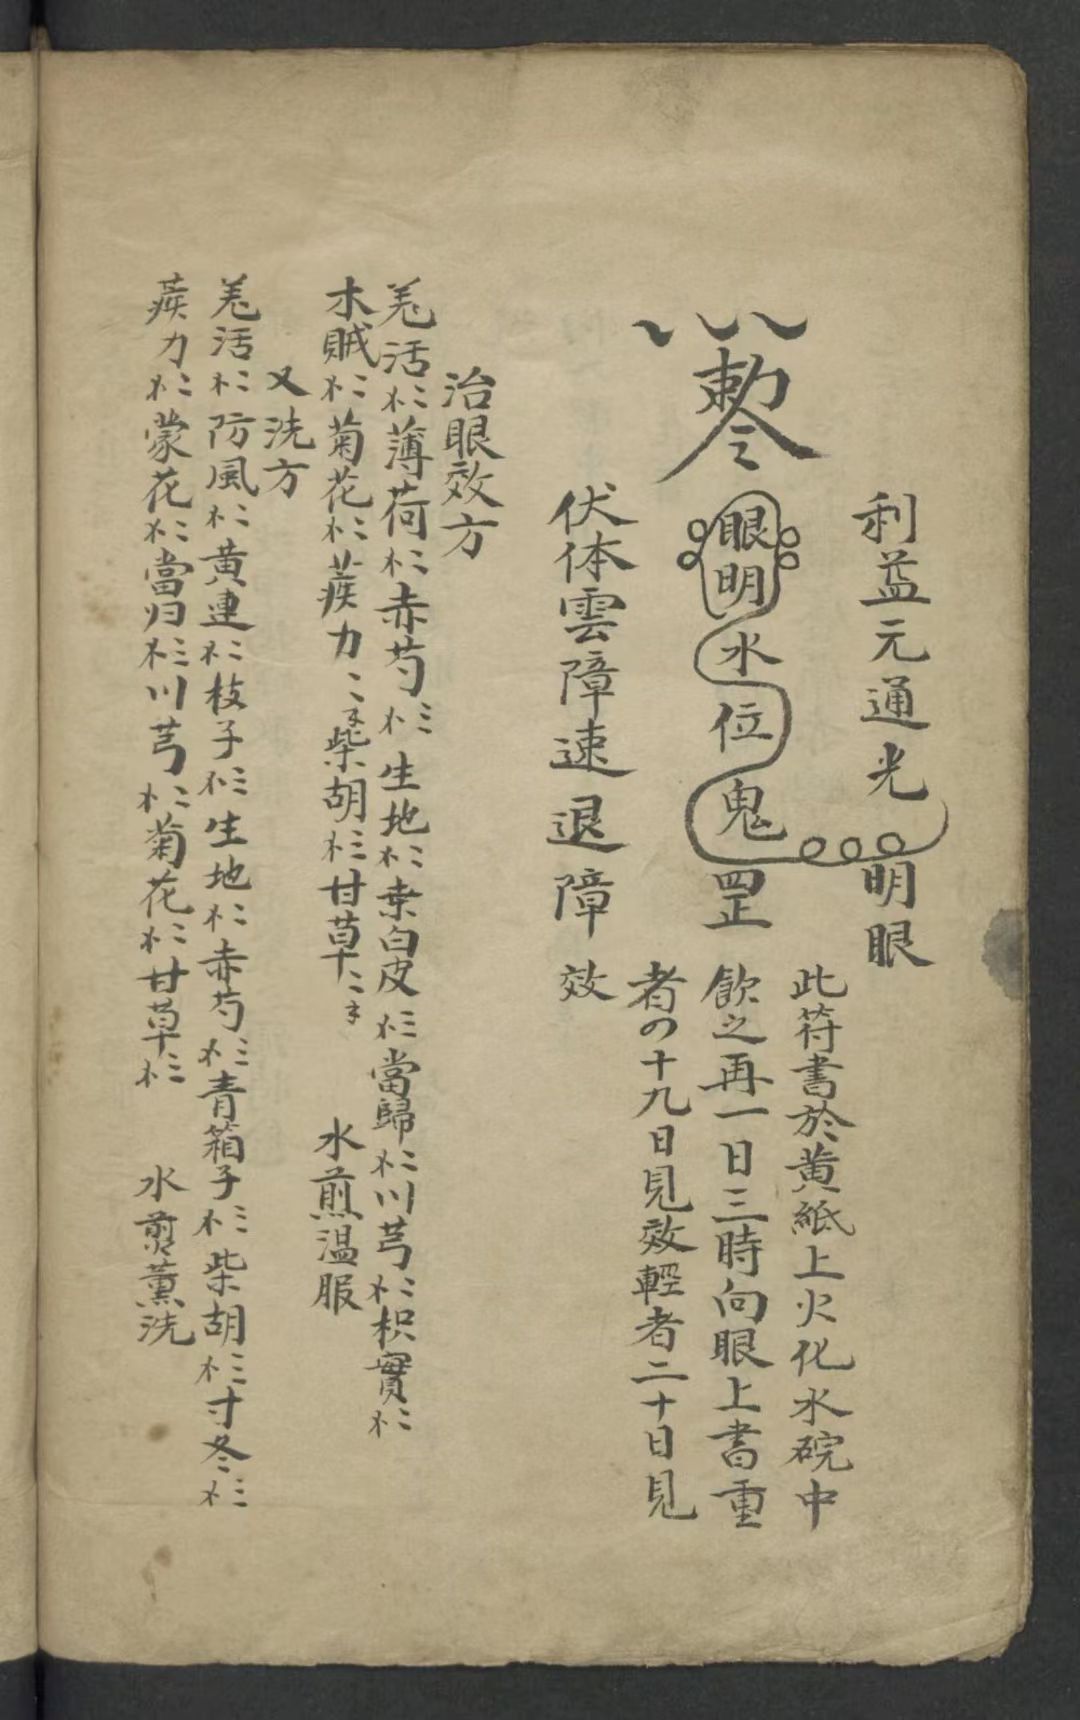 利益元通光明眼
敕令
眼明水位鬼罡
伏体雲障速退障
此符書於黄紙上火化水碗中
飲之再一日三時向眼上書重
者の十九日見效輕者二十日見
效
治眼效方
羌活 薄荷 赤芍 生地 桒白皮 當歸 川芎 枳實
木賊 菊花 蒺力 柴胡 甘草 水煎温服
又洗方
羌活 防風 黄連 枝子 生地 赤芍 青箱子 柴胡 寸冬
蒺力 蒙花 當归 川芎 菊花 甘草 水煎薰洗